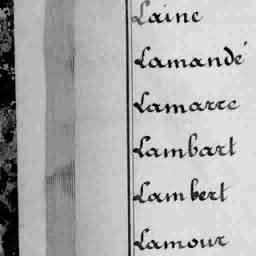 Laine
Lamandé
Lamarre
Lambart
Lambert
Lamour